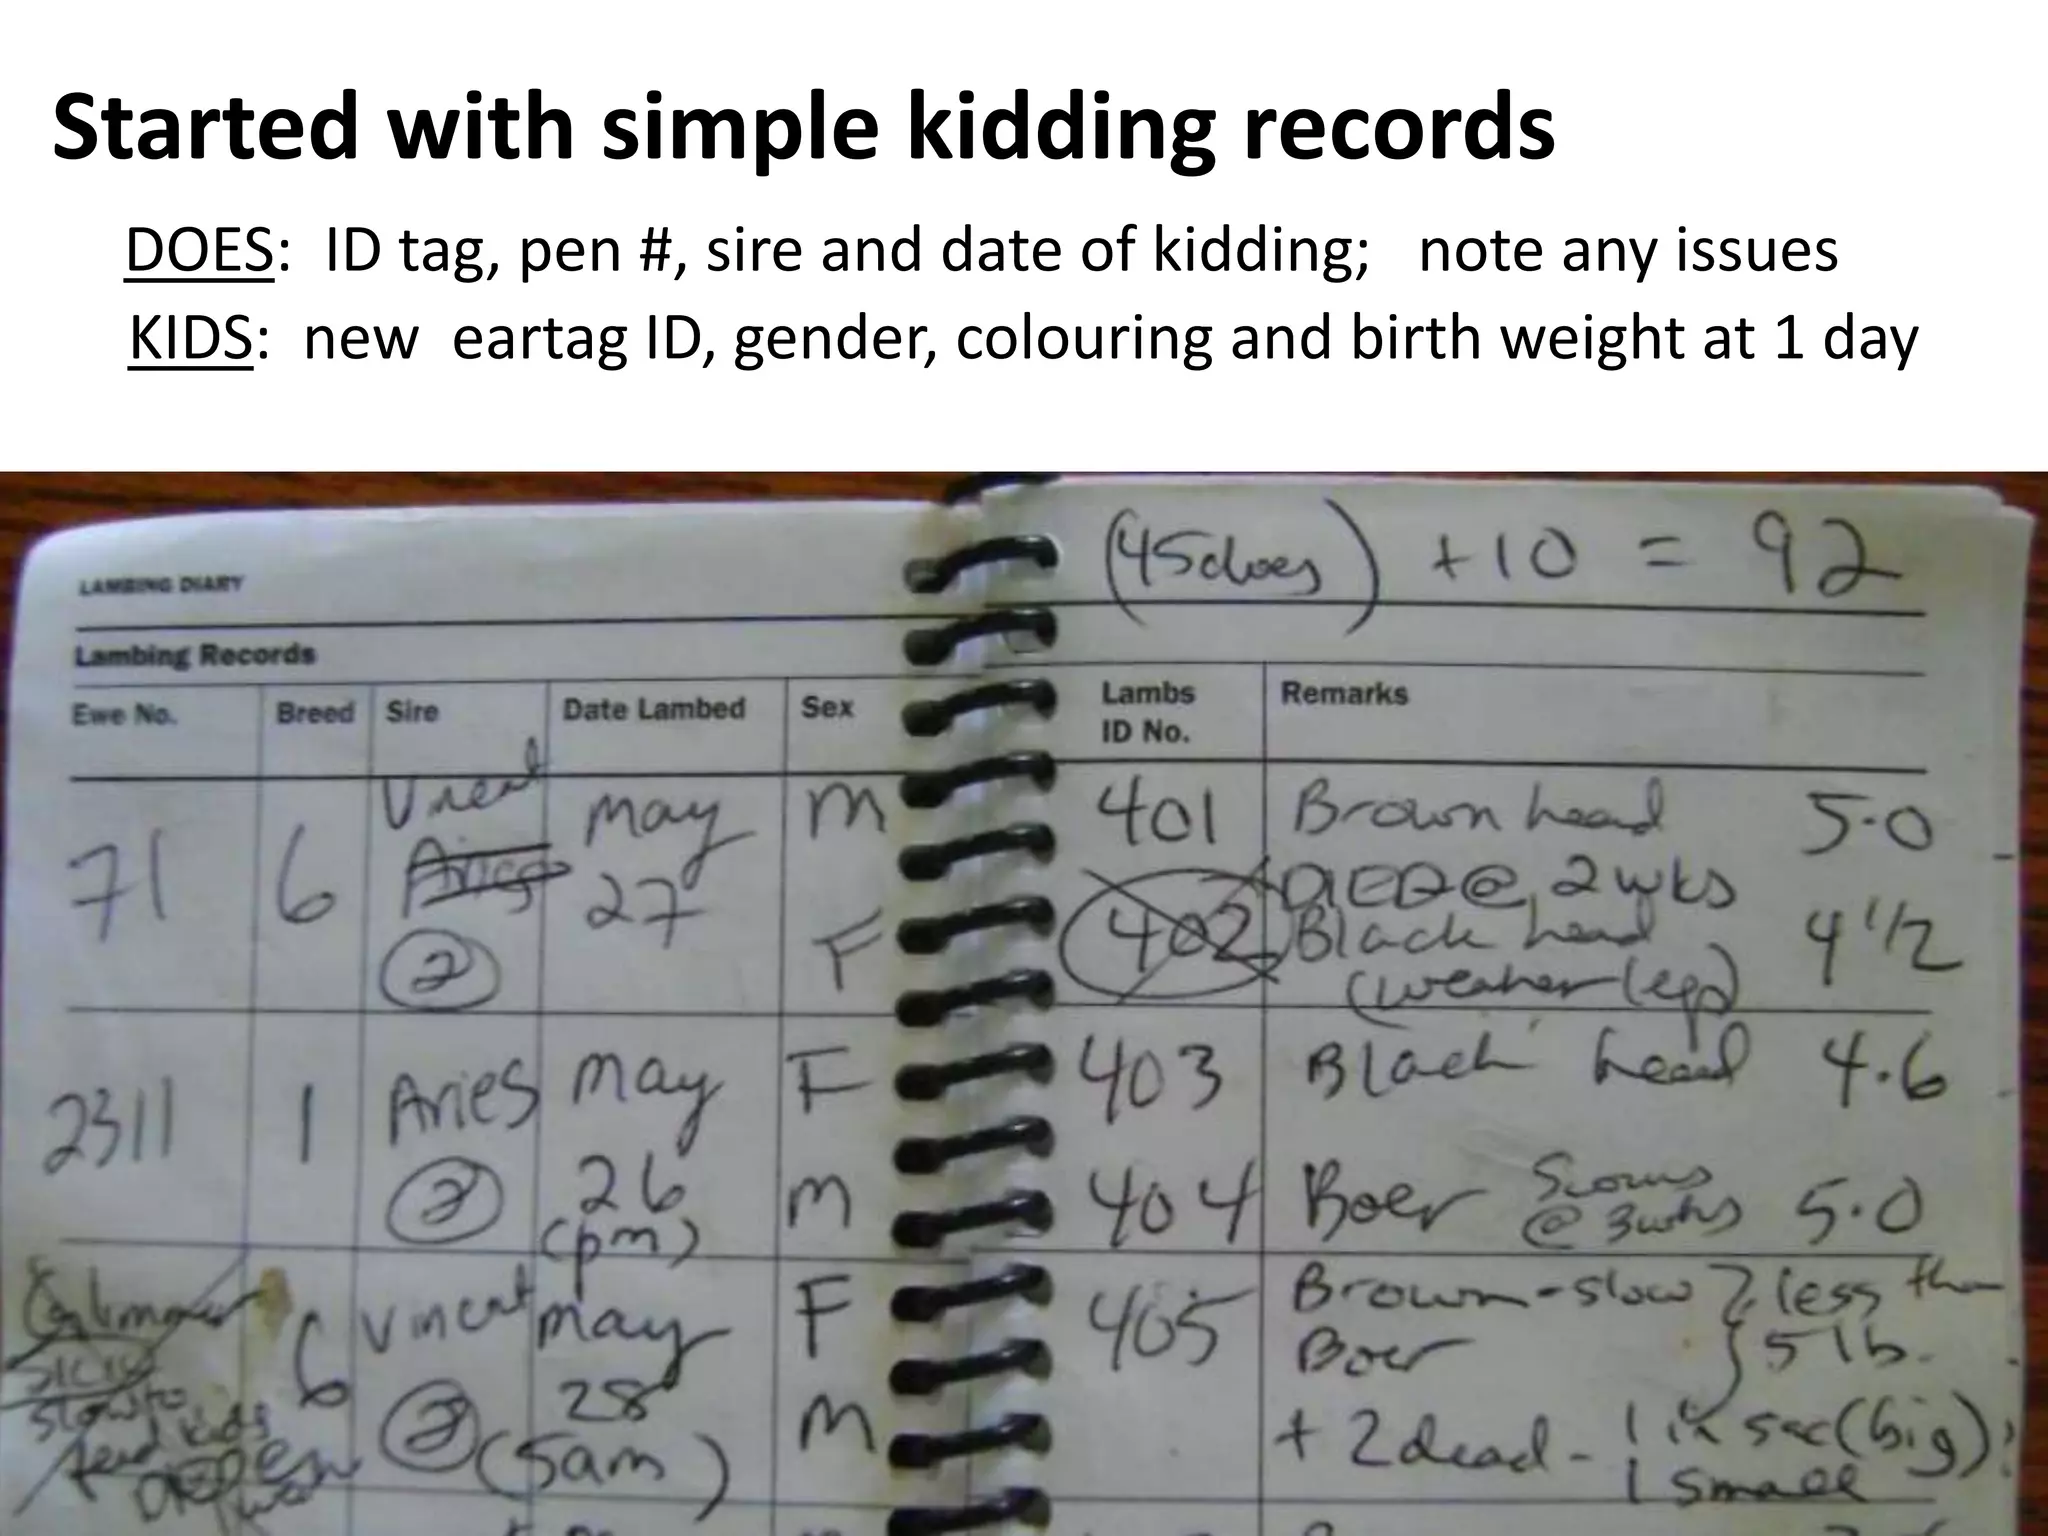 Started with simple kidding records
DOES: ID tag, pen #, sire and date of kidding; note any issues
KIDS: new eartag ID, gender, colouring and birth weight at 1 day
(45 does) +10 = 92
LAMBING DIARY
Lambing Records
Ewe No. Breed Sire Date Lambed Sex Lambs ID No. Remarks
71 6 Vincent May M 401 Brown head 5.0
Aries 27 DIED @ 2 wks
2 F 402 Black head 4 1/2
(weaker legs)
2311 1 Aries May F 403 Black head 4.6
2 26 M 404 Boer Scours 5.0
(pm) @ 3wks
6 Vincent May F 405 Brown-slow } less than
Boer } 5 lb.
2 28 M + 2 dead - 1 in sac (big)
slow to
feed kids
DIED
(5am) 1 small